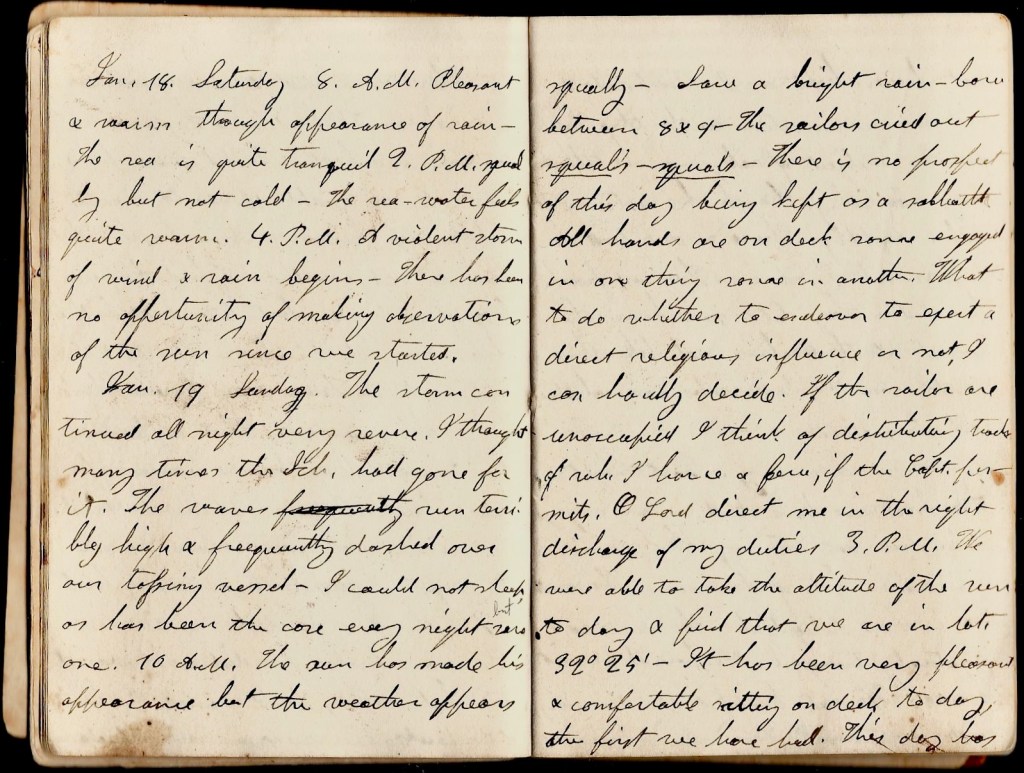 Jan. 18. Saturday 8. A.M. Pleasant
& warm though appearance of rain –
The sea is quite tranquil 2. P.M. squal
ly but not cold – The sea-water feels
quite warm. 4. P.M. A violent storm
of wind & rain begins – There has been
no opportunity of making observations
of the sun since we started.
Jan. 19 Sunday. The storm con
tinued all night very severe. I thought
many times the Sch. had gone for
it. The waves frequently run terri-
bly high & freequently dashed over
our tossing vessel – I could not sleep
but
as has been the case every night
one. 10 A.M. The sun has made his
appearance but the weather appears
squally – Saw a bright rain-bow
between 8 & 9 – The sailors cried out
squals – squals – There is no prospect
of this day being kept as a sabbath
All hands are on deck some engaged
in one thing some in another. What
to do whether to endeavor to exert a
direct religious influence or not, I
can hardly decide. If the sailor are
unoccupied I think of distributing tracts
of wh. I have a few, if the Capt. per-
mits. O Lord direct me in the right
discharge of my duties 3. P.M. We
were able to take the altitude of the sun
to day & find that we are in lat.
32° 25' – It has been very pleasant
& comfortable sitting on deck to day,
the first we have had. This day has